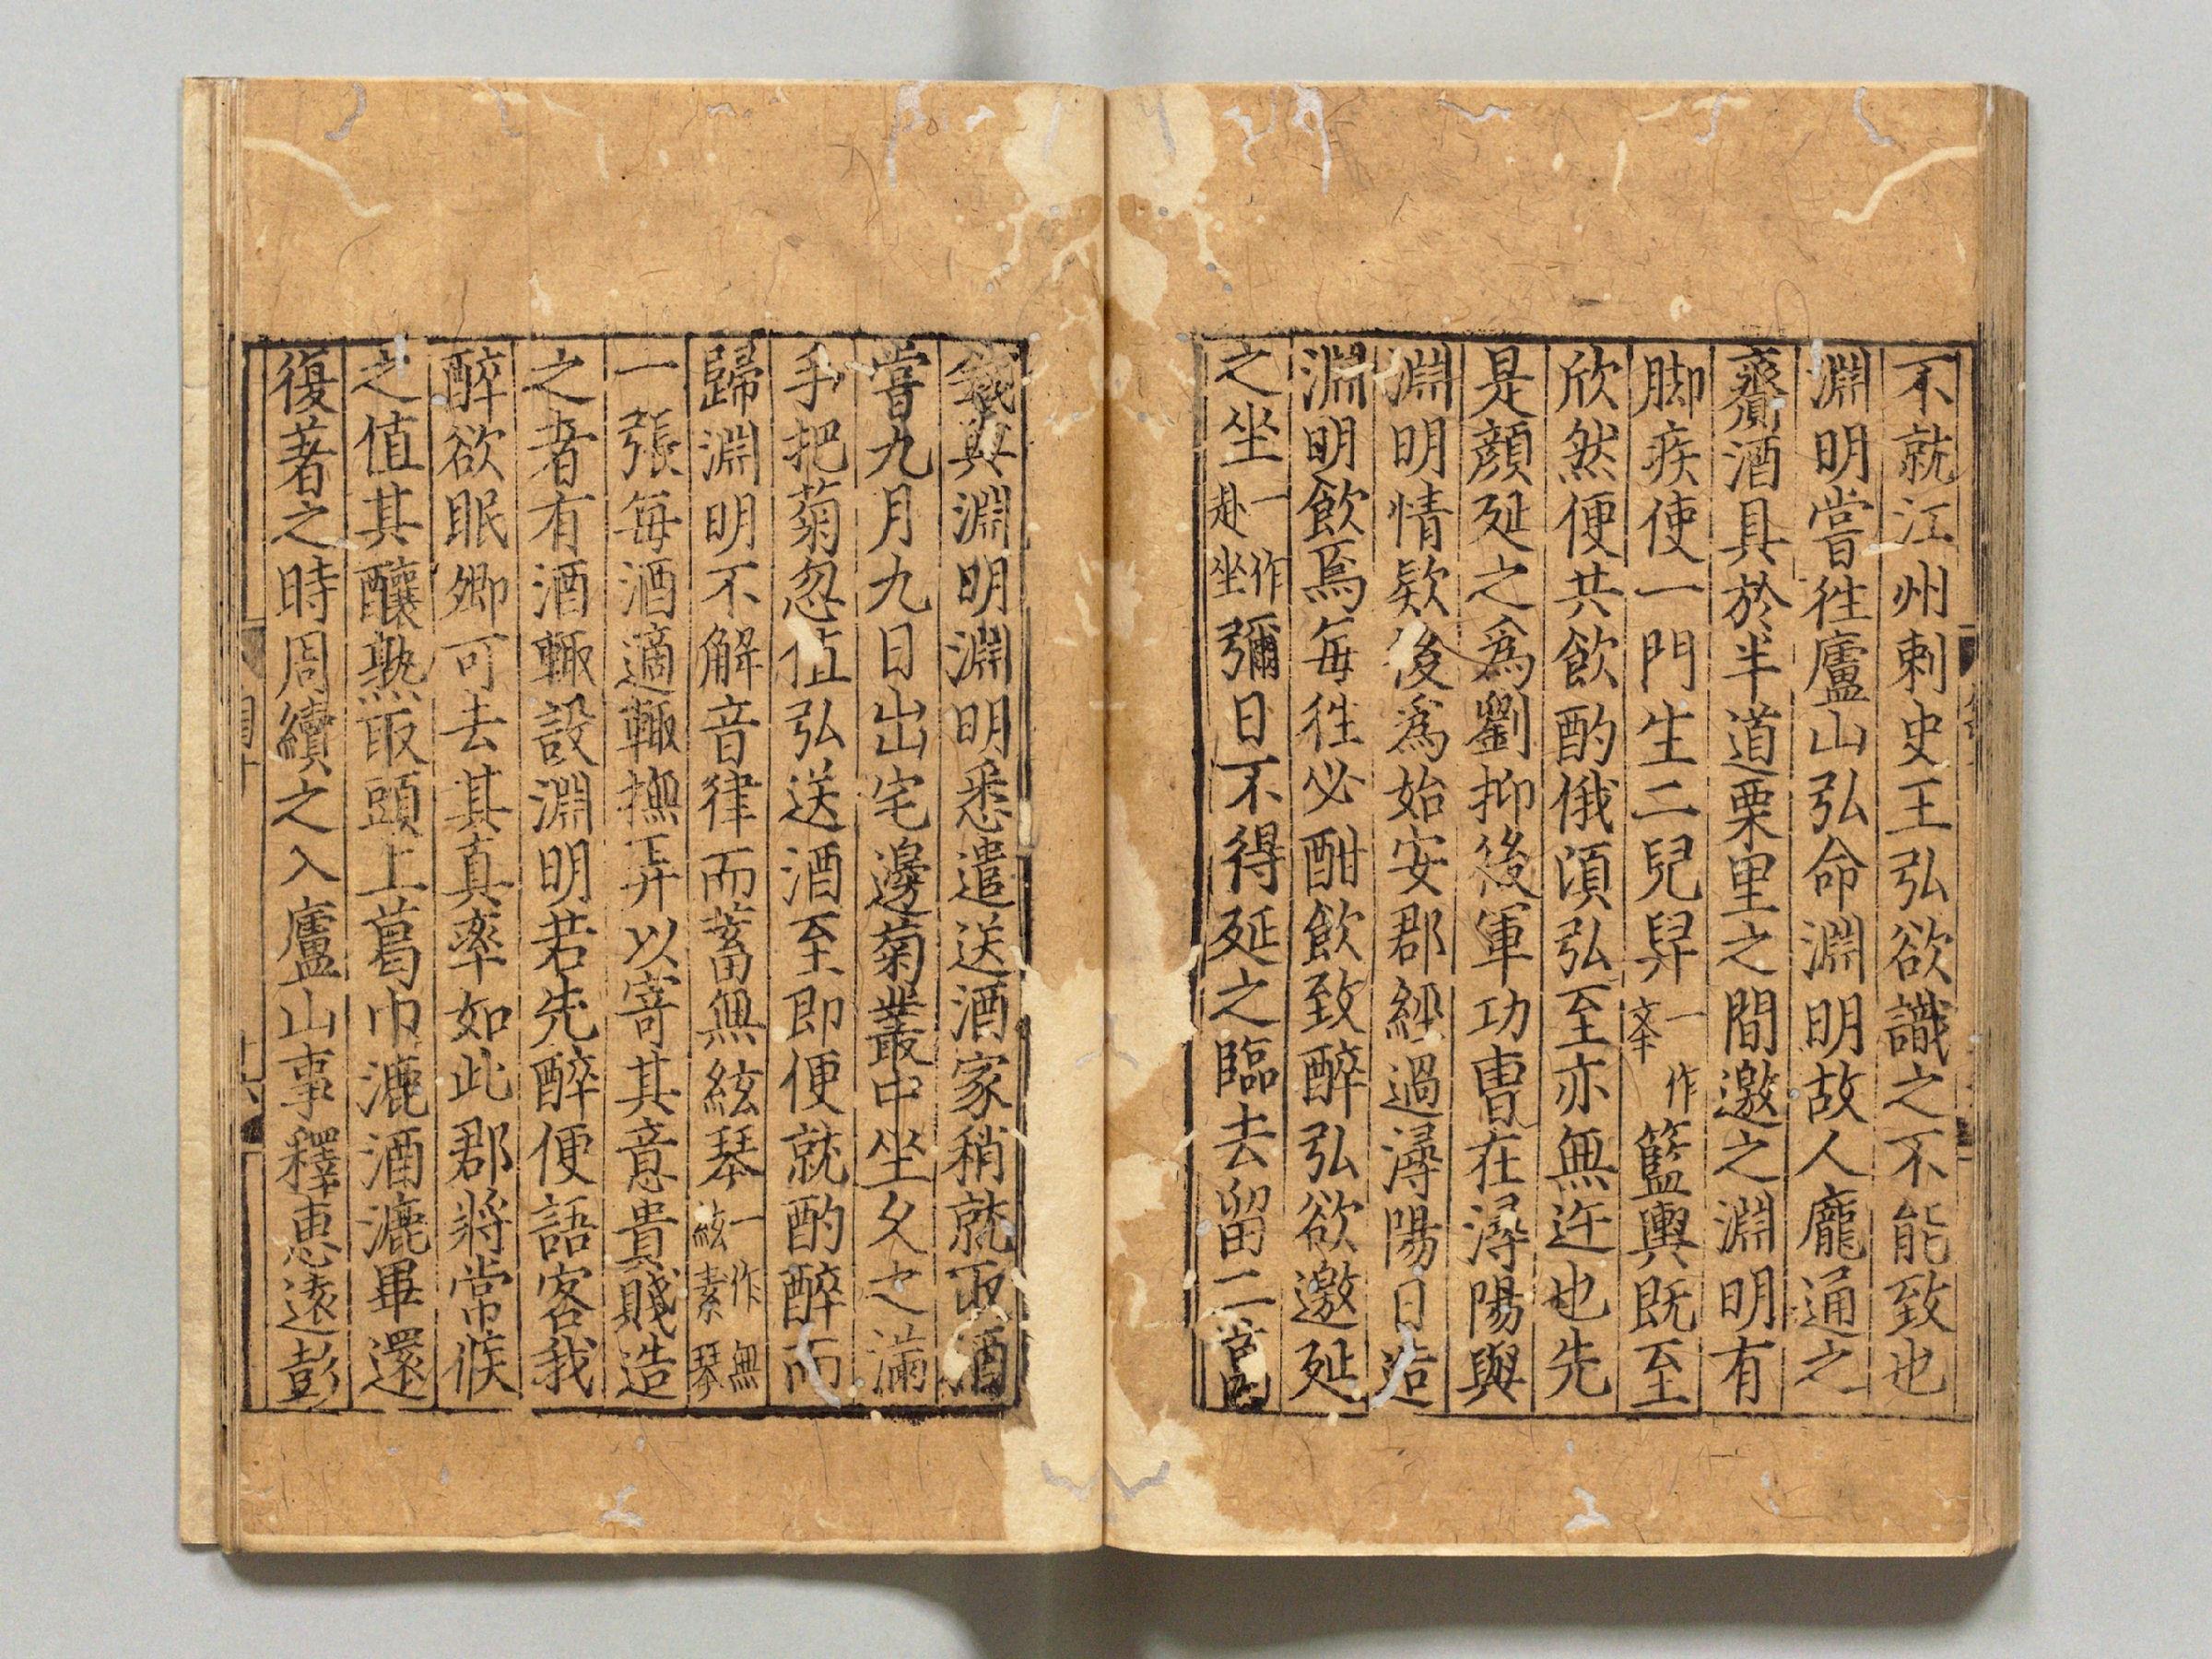 不就江州刺史王弘欲識之不能致也
淵明嘗徃廬山弘命淵明故人龐通之
齎酒具於半道栗里之間邀之淵明有
脚疾使一門生二兒舁一作轝籃輿既至
欣然便共飲酌俄頃弘至亦無迕也先
是顔延之爲劉抑後軍功曹在潯陽與
淵明情欵後爲始安郡經過潯陽日造
淵明飲焉每徃必酣飲致醉弘欲邀延
之坐一作赴坐彌日不得延之臨去留二萬
錢與淵明淵明悉遣送酒家稍就取酒
嘗九月九日出宅邊菊叢中坐久之滿
手把菊忽值弘送酒至即便就酌醉而
歸淵明不解音律而蓄無絃琴一作無絃素琴
一張每酒適輙撫弄以寄其意貴賤造
之者有酒輙設淵明若先醉便語客我
醉欲眠卿可去其真率如此郡將常候
之值其釀熟取頭上葛巾漉酒漉畢還
復著之時周續之入廬山事釋惠遠彭